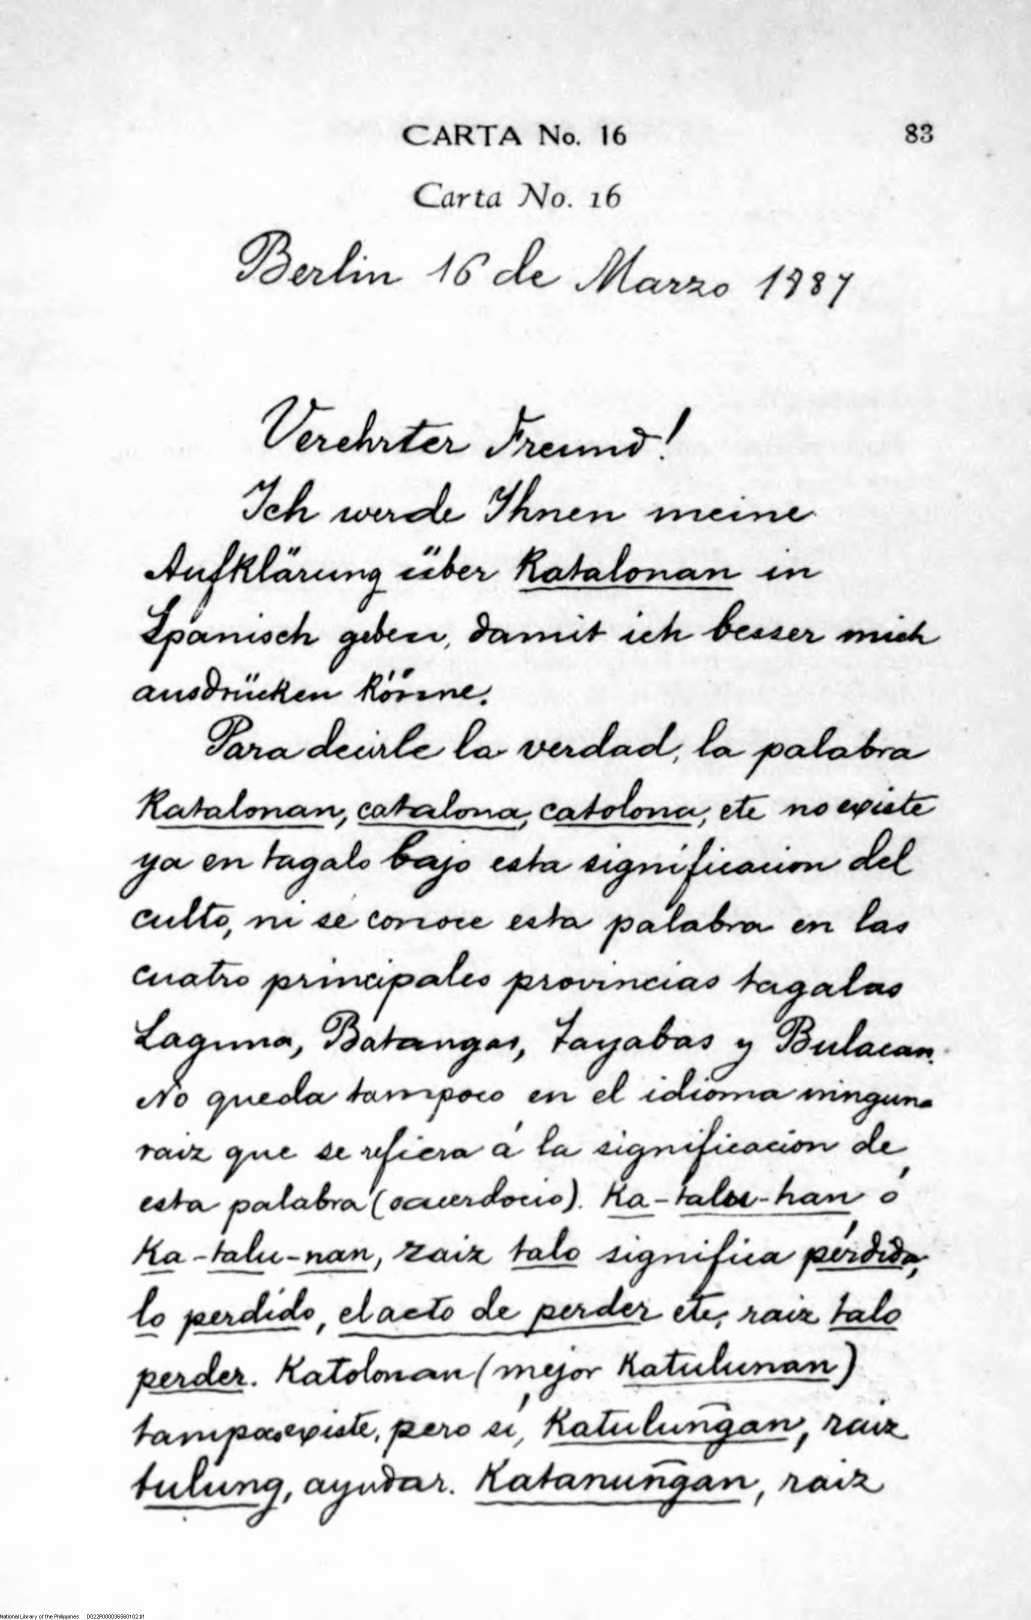 CARTA No. 16 83
Carta No. 16
Berlin 16 de Marzo 1887
Verehrter Freund!
Ich werde Ihnen meine
Aufklärung über Katalonan in
Spanisch geben, damit ich besser mich
ausdrücken könne.
Para decirle la verdad, la palabra
Katalonan, catalona, catolona, etc no existe
ya en tagalo bajo esta significacion del
culto, ni se conoce esta palabra en las
cuatro principales provincias tagalas
Laguna, Batangas, Tayabas y Bulacan.
No queda tampoco en el idioma ninguna
raiz que se refiera á la significacion de
esta palabra (sacerdocio). Ka-talu-han ó
Ka-talu-nan, raiz talo significa pérdida,
lo perdido, el acto de perder etc, raiz talo
perder. Katolonan (mejor Katulunan)
tampoco existe, pero sí, Katulun͠gan, raiz
tulung, ayudar. Katanun͠gan, raiz
National Library of the Philippines D022R0000036560102.tif